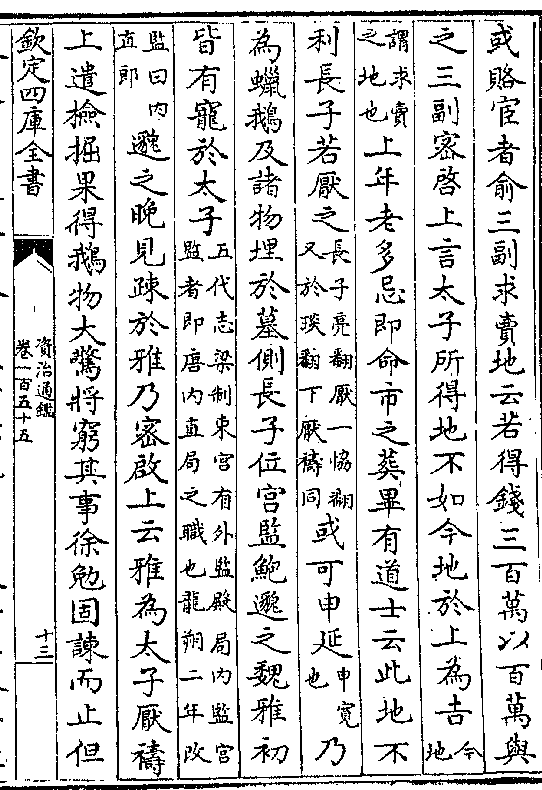 或賂宦者俞三副求賣地云若得錢三百萬以百萬與
之三副密啓上言太子所得地不如今地於上為吉今地
謂求賣之地也上年老多忌即命市之葬畢有道士云此地不
利長子若厭之長子亮翻厭一恊翻又於琰翻下厭禱同或可申延申寛也乃
為蠟鵝及諸物埋於墓側長子位宮監鮑邈之魏雅初
皆有寵於太子五代志梁制東宮有外監殿局内監宮監者即唐内直局之職也龍朔二年改
監曰内直郎邈之晩見疎於雅乃密啟上云雅為太子厭禱
上遣檢掘果得鵝物大驚將窮其事徐勉固諫而止但
欽定四庫全書
資治通鑑
卷一百五十五
十三